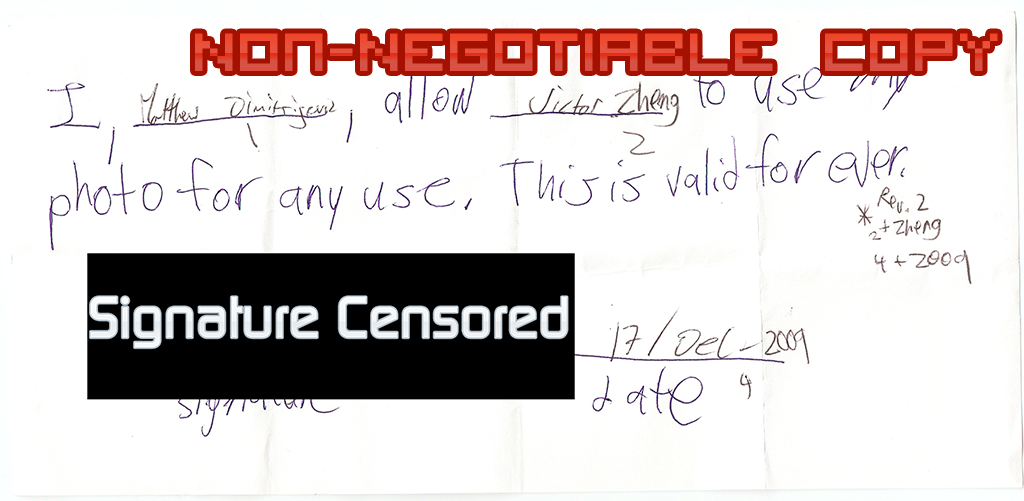 NON-NEGOTIABLE COPY
I, Matthew, allow Victor Zheng to use my
1 2
photo for any use. This is valid for ever.
* Rev. 2
2 + Zheng
4 + 2009
Signature Censored
17/Dec-2009
signature date 4